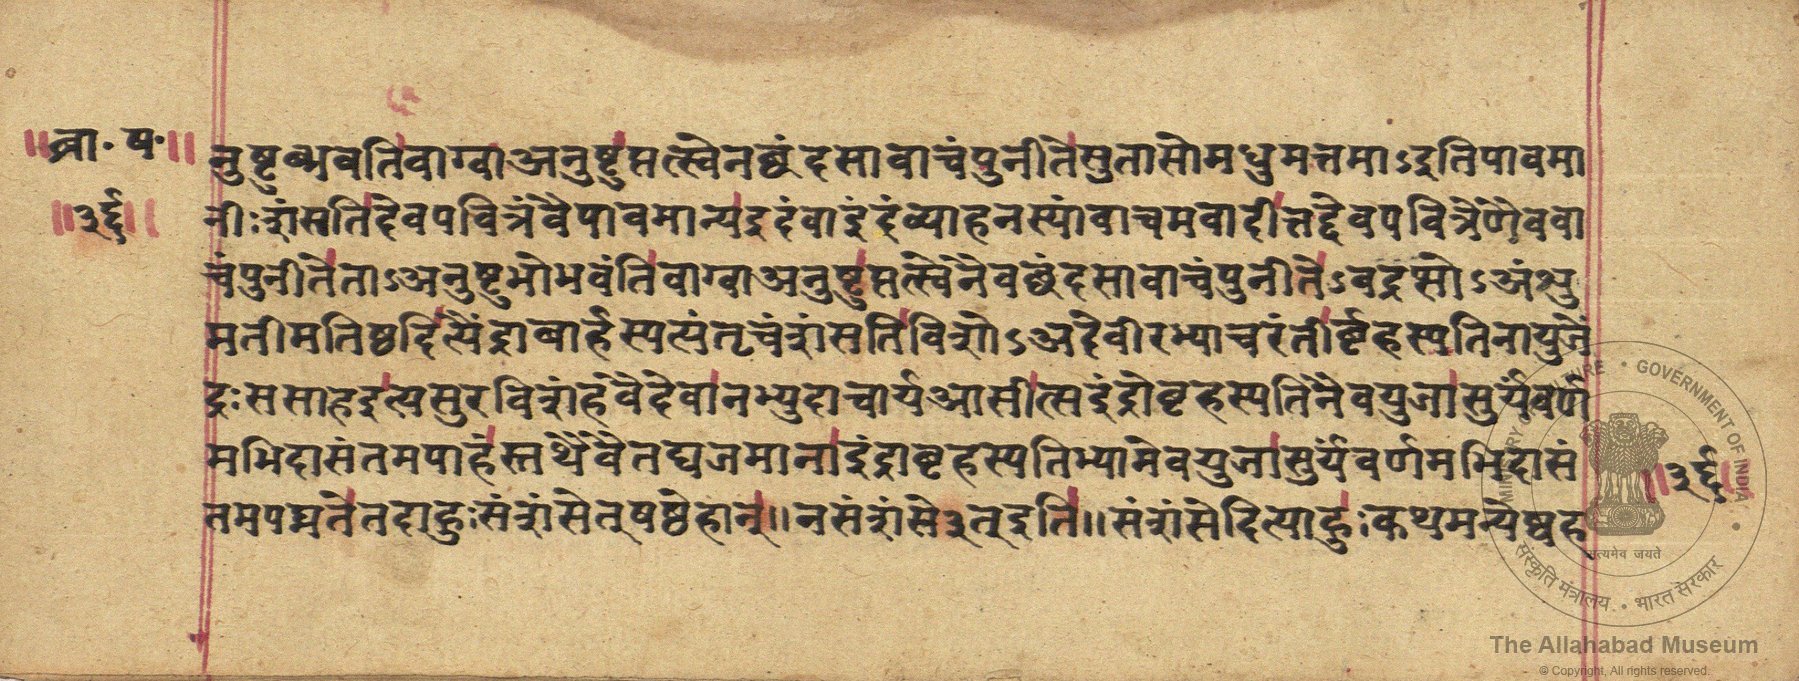 ॥ब्रा॰ ष॰॥
नुष्टुब्भवतिवाग्वाअनुष्टुप्तत्स्वेनच्छंदसावाचंपुनीतेसुतासोमधुमत्तमाऽइतिपावमा
॥३६॥
नीःशंसतिदेवपवित्रंवैपावमान्यइदंवाइदंव्याहनस्यांवाचमवादीत्तद्देवपवित्रेणैववा
चंपुनीतेताऽअनुष्टुभोभवंतिवाग्वाअनुष्टुप्तत्स्वेनैवच्छंदसावाचंपुनीतेऽवद्रप्सोऽअंशु
मतीमतिष्ठदित्यैंद्राबार्हस्पत्यंतृचंशंसतिविशोऽअदेवीरभ्याचरंतीर्बृहस्पतिनायुजें
द्रःससाहइत्यसुरविशंहवैदेवानभ्युदाचार्यआसीत्सइंद्रोबृहस्पतिनैवयुजासुर्यंवर्ण
मभिदासंतमपाहंस्तथैवैतद्यजमानाइंद्राबृहस्पतिभ्यामेवयुजासुर्यंवर्णमभिदासं
तमपघ्नतेतदाहुःसंशंसेत्षष्ठेहान्॥नसंशंसे३त्इति॥संशंसेदित्याहुःकथमन्येष्वह
॥३६॥
MINISTRY OF CULTURE • GOVERNMENT OF INDIA •
सत्यमेव जयते
संस्कृति मंत्रालय • भारत सरकार
The Allahabad Museum
© Copyright, All rights reserved.